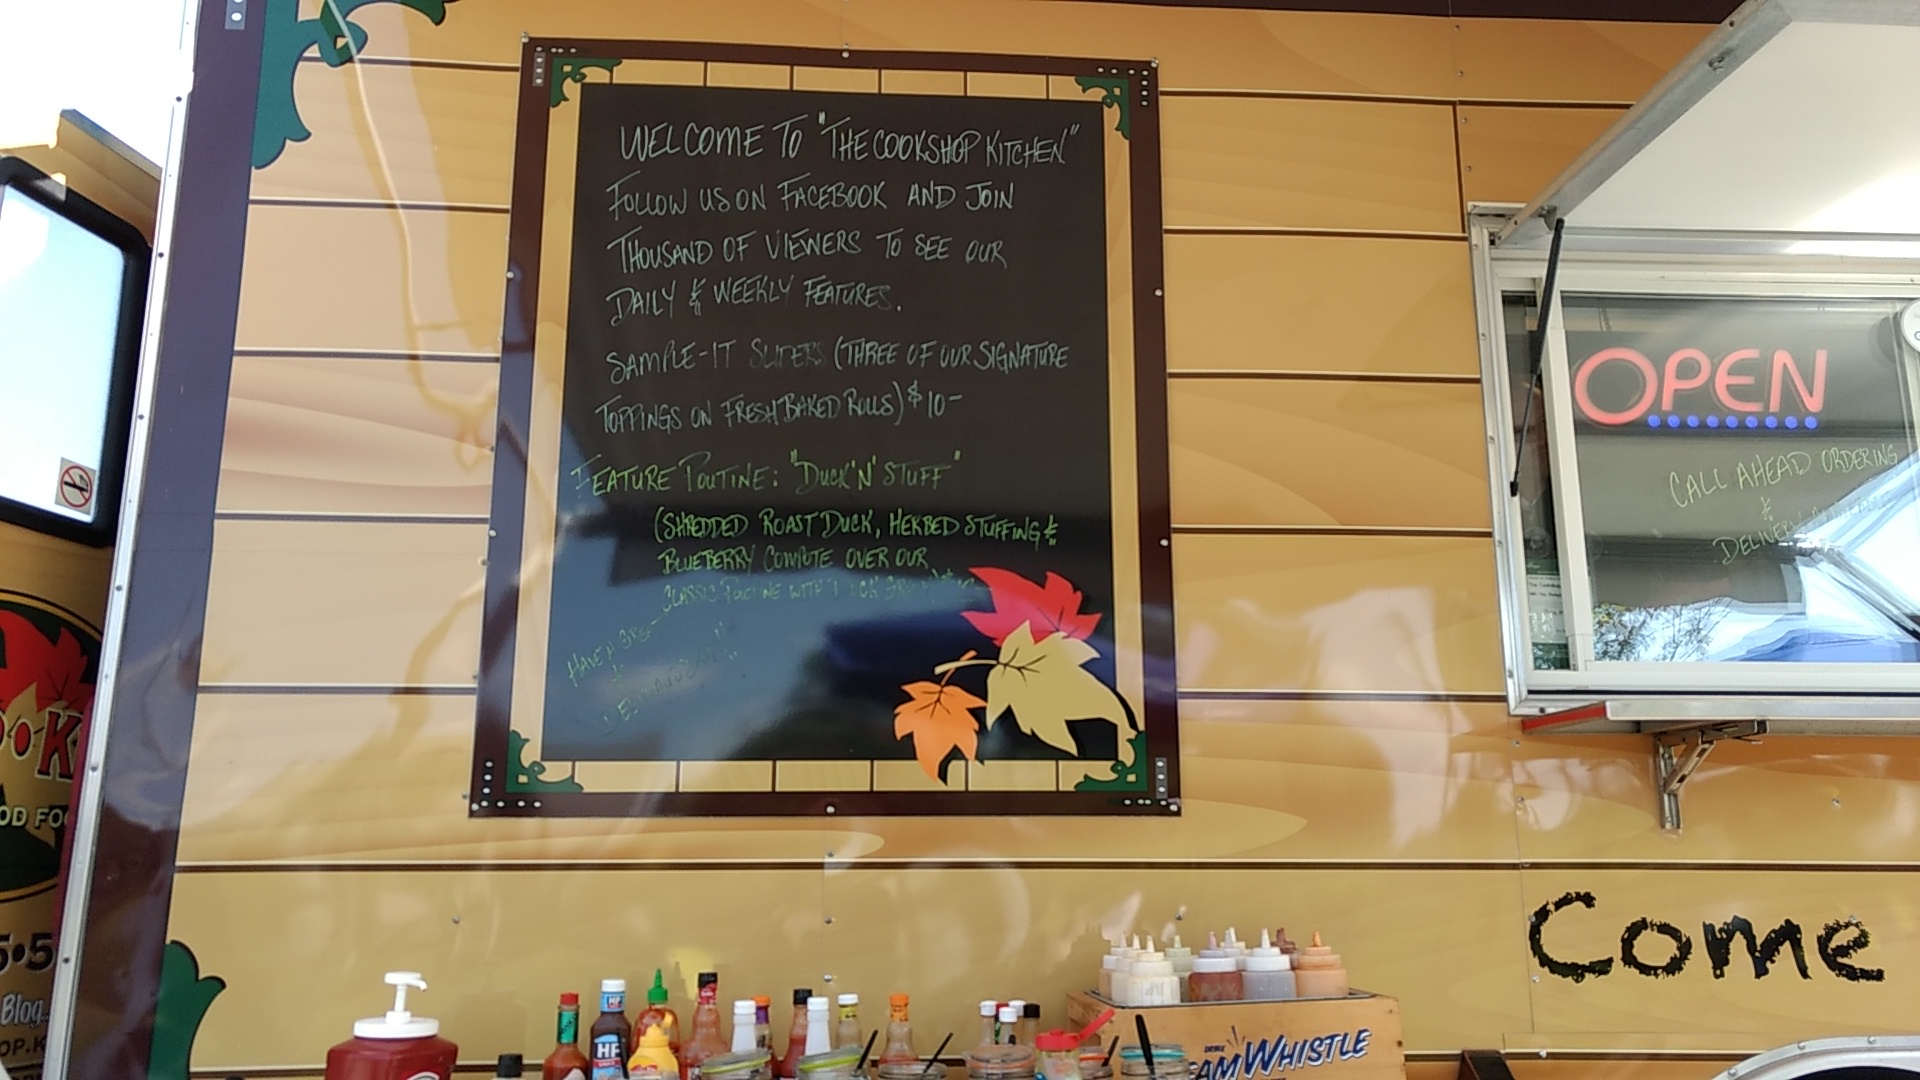 WELCOME TO "THE COOKSHOP KITCHEN"
FOLLOW US ON FACEBOOK AND JOIN
THOUSAND OF VIEWERS TO SEE OUR
DAILY & WEEKLY FEATURES.
SAMPLE-IT SLIDERS (THREE OF OUR SIGNATURE
TOPPINGS ON FRESH BAKED ROLLS) $10-
FEATURE POUTINE: "DUCK 'N' STUFF"
(SHREDDED ROAST DUCK, HERBED STUFFING &
BLUEBERRY COMPOTE OVER OUR
CLASSIC POUTINE WITH DUCK
HAVE A
OPEN
CALL AHEAD ORDERING
&
DELIVERY
Come
HP
HP
WHISTLE
Blog..